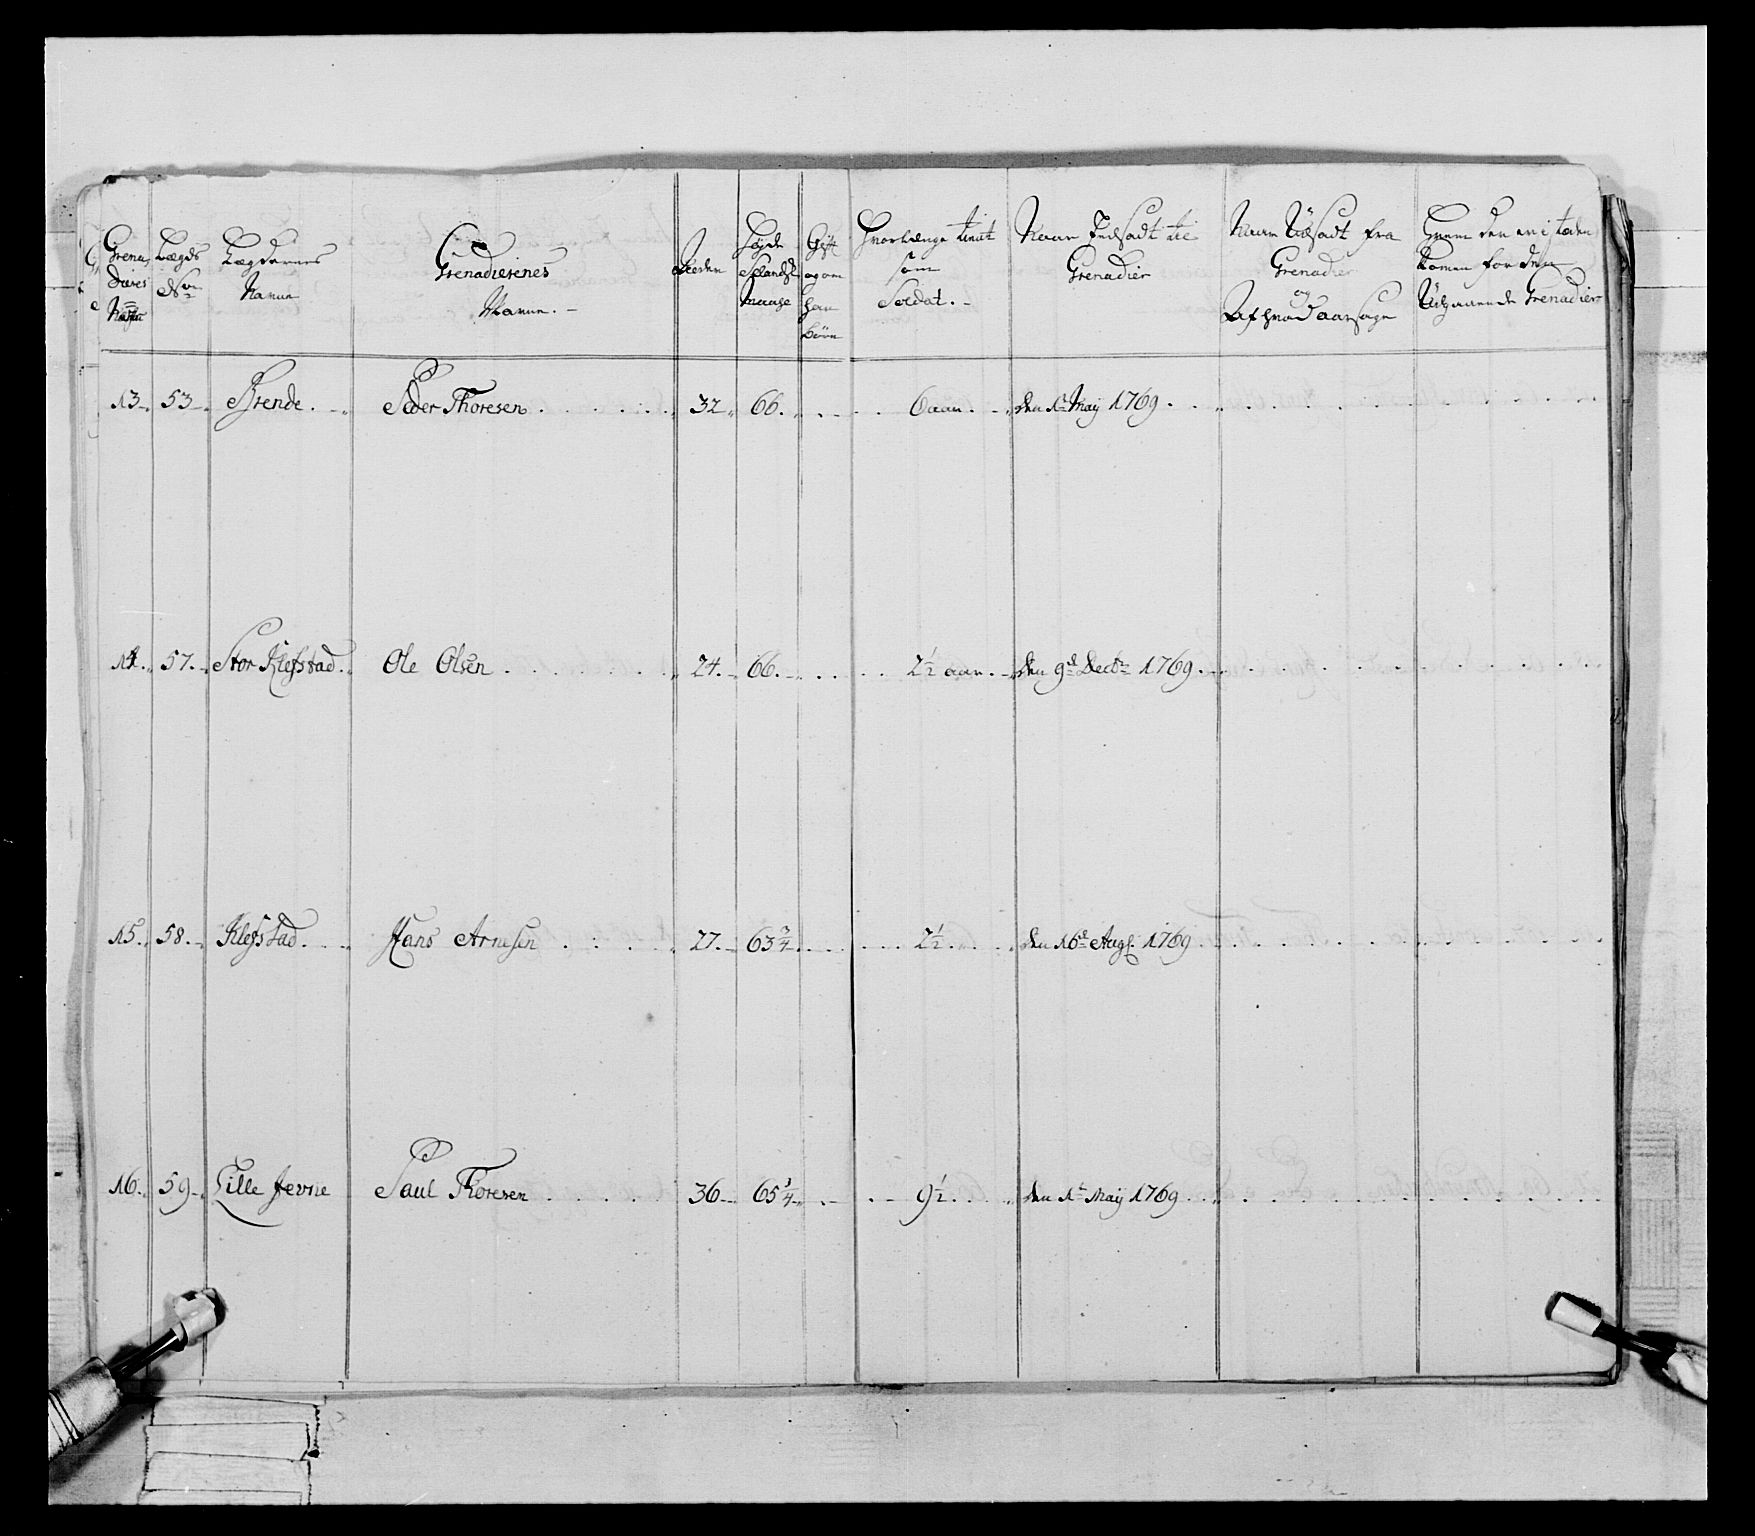 Grena
dieres
Lægds
No
Lægdernes
Nafne
Grenadierenes
Nafne. -
Alder
Høyde
Siælandsk
Maase
Gift
og om
han
Børn
Hvorlænge tient
som
Soldat. -
Naar Indsadt til
Grenadier
Naar Udsadt fra
Grenadier
og
Af hvad aarsage
Hvem der er i stæden
komen for den
Udgaaende Grenadier
13. 53. Brende. Peder Thoresen 32 66. 6 aar. den 1te May 1769.
14. 57. Stor Klefstad. Ole Olsen 24. 66. 2½ aar. den 9de Decbr 1769.
15. 58. Klefstad. Hans Arnesen 27. 63¾ 2½ den 16de Augs. 1769.
16. 59. Lille Jevne Paul Thoresen 36 65¼ 9½ den 1te May 1769.